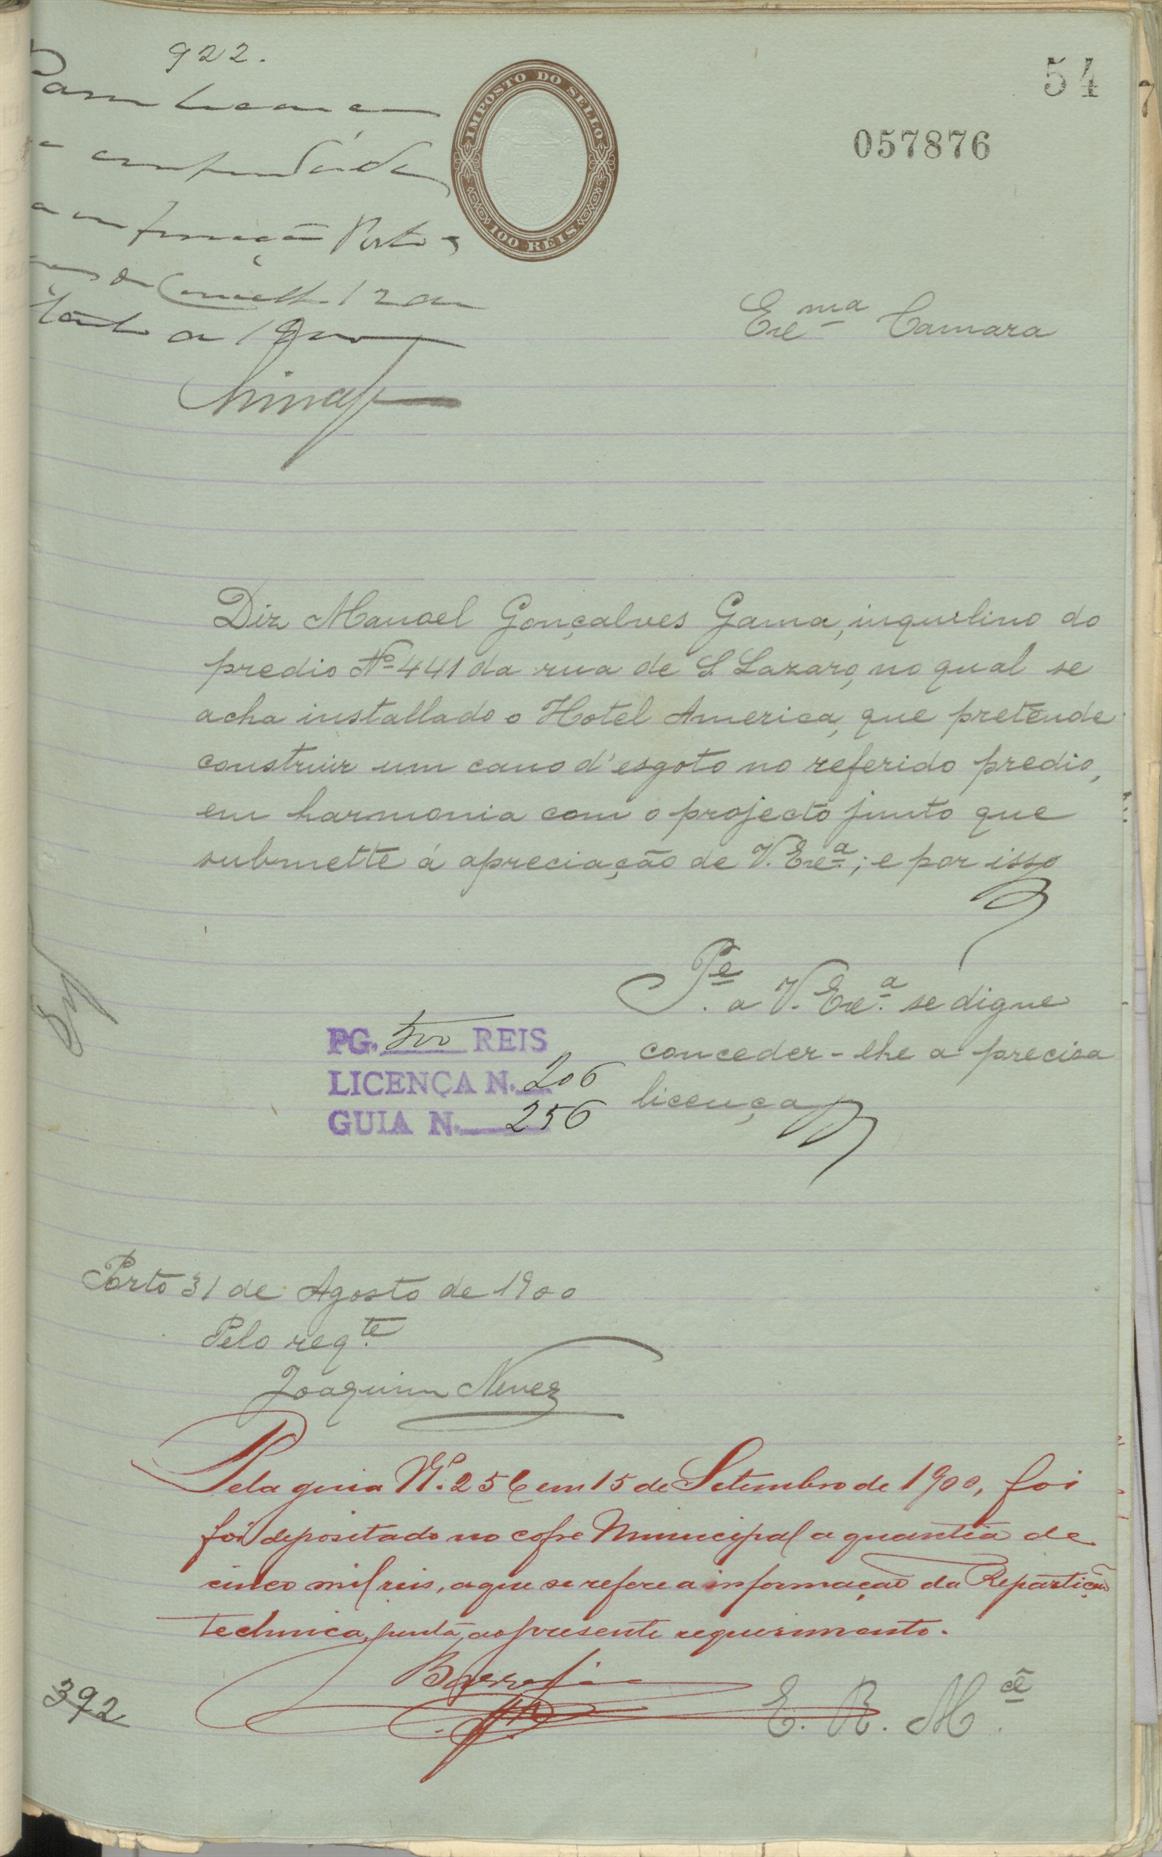 922.
54
057876
IMPOSTO DO SELLO
100 REIS
Passe licença
Porto e
Paços do Concelho 12 de
de 1900
Exe.ma Camara
Diz Manoel Gonçalves Gama, inquilino do
predio Nº 441 da rua de S. Lazaro, no qual se
acha installado o Hotel America, que pretende
construir um cano d'esgoto no referido predio,
em harmonia com o projecto junto que
submette á apreciação de V. Exe.a; e por isso
P.e a V. Exe.a se digne
conceder-lhe a precisa
licença
PG. 500 REIS
LICENÇA N. 206
GUIA N. 256
Porto 31 de Agosto de 1900
Pelo reqte.
Joaquim Neves
Pela guia Nº. 256 em 15 de Setembro de 1900, foi
foi depositado no cofre Municipal a quantia de
cinco mil reis, a que se refere a informação da Repartição
technica, junta ao presente requerimento.
E. R. M.cê
392